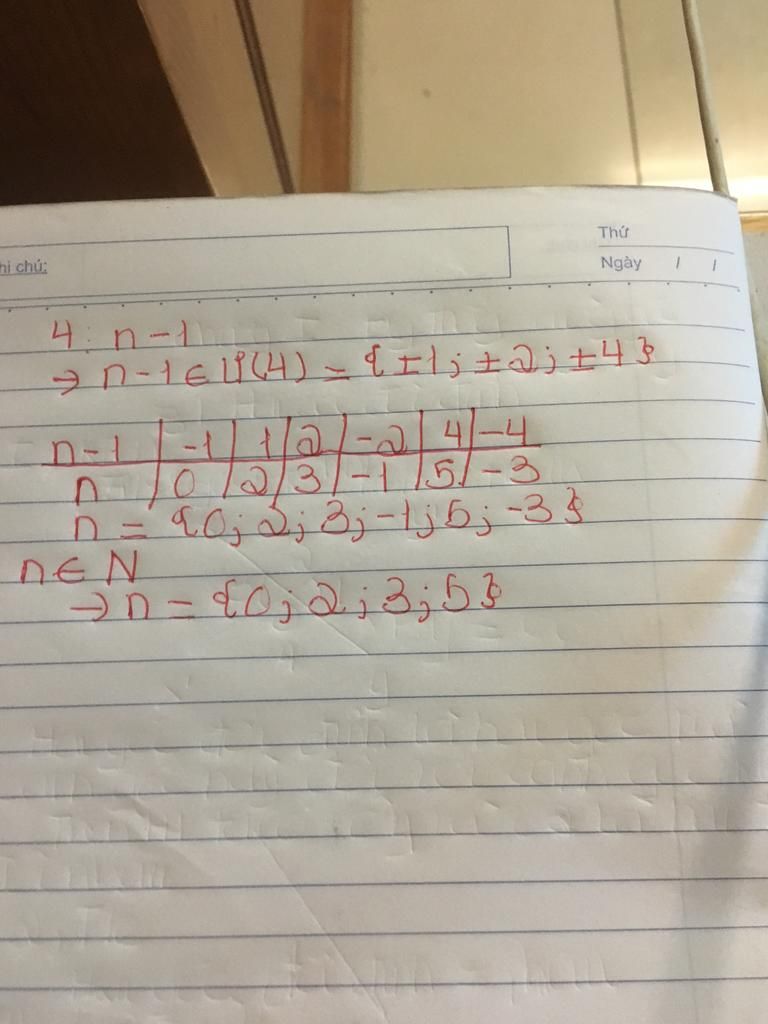 hi chú:
Thứ
Ngày / /
4 : n - 1
→ n - 1 ∈ Ư(4) = {±1; ±2; ±4}
n - 1 | -1 | 1 | 2 | -2 | 4 | -4
n | 0 | 2 | 3 | -1 | 5 | -3
n = {0; 2; 3; -1; 5; -3}
n ∈ N
→ n = {0; 2; 3; 5}